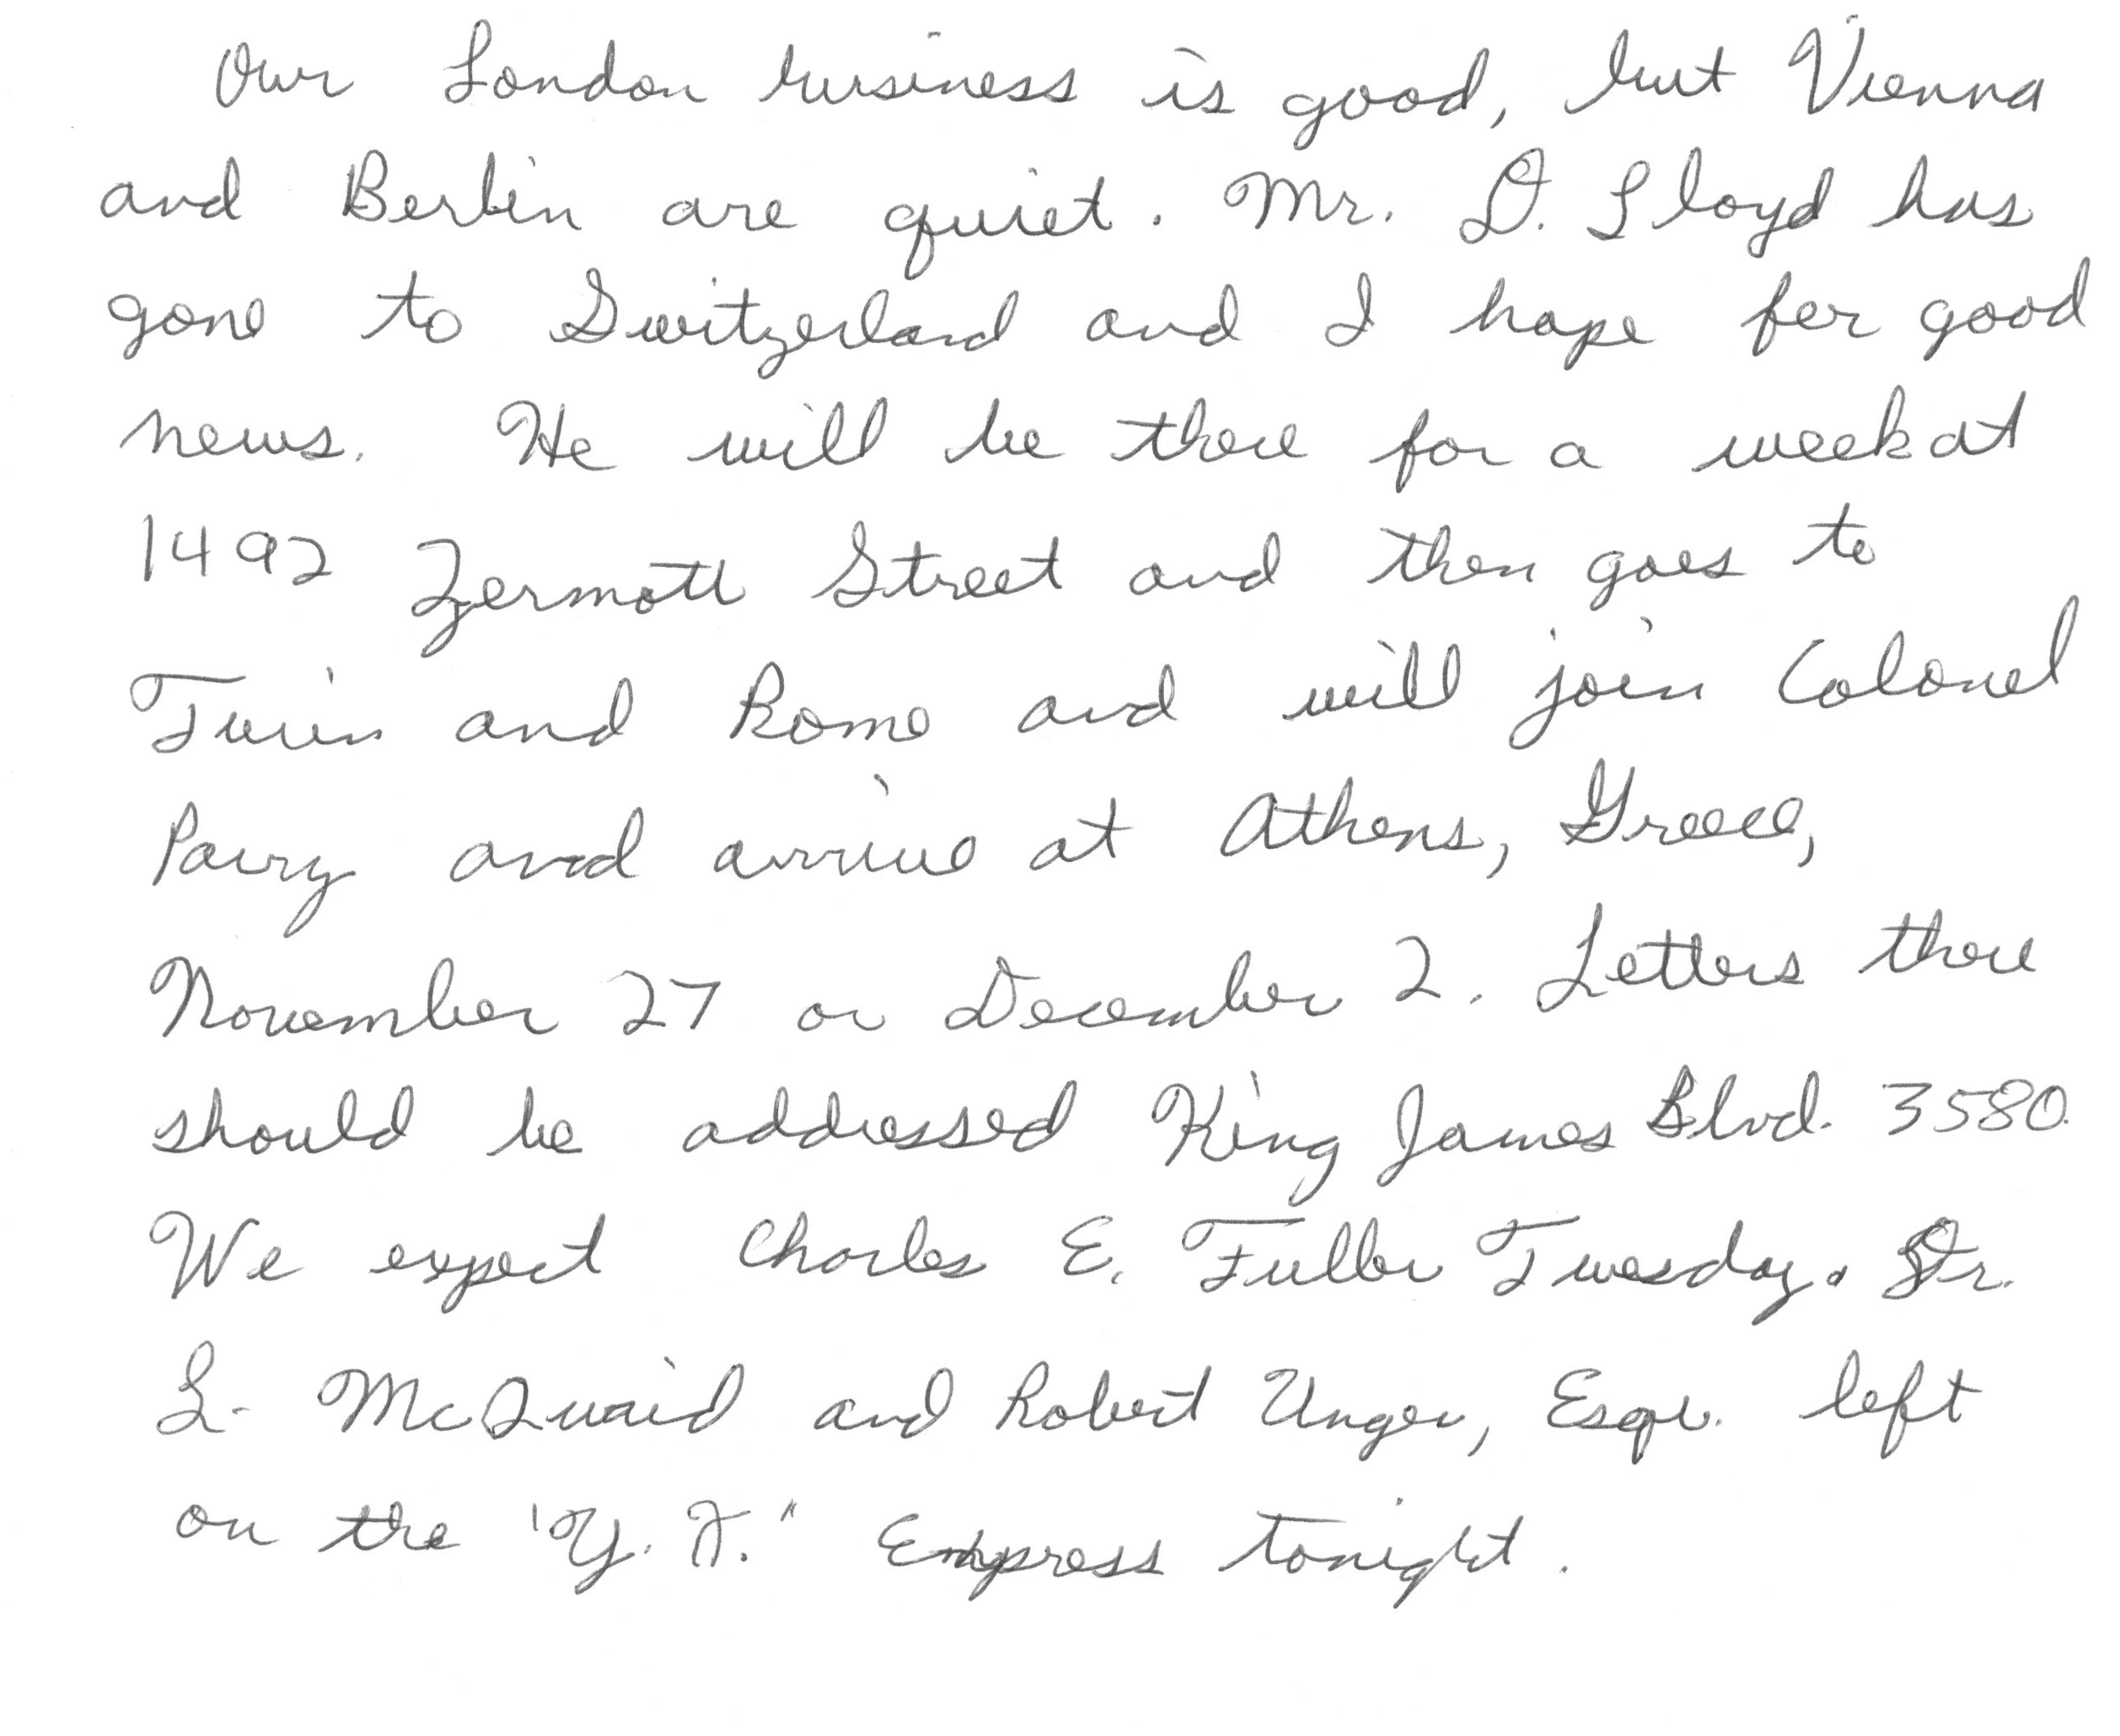 Our London business is good, but Vienna
and Berlin are quiet. Mr. D. Lloyd has
gone to Switzerland and I hope for good
news. He will be there for a week at
1492 Zermott Street and then goes to
Turin and Rome and will join Colonel
Parry and arrive at Athens, Greece,
November 27 or December 2. Letters there
should be addressed King James Blvd. 3580.
We expect Charles E. Fuller Tuesday. Dr.
L. McQuaid and Robert Unger, Esqr. left
on the "Y. F." Express tonight.